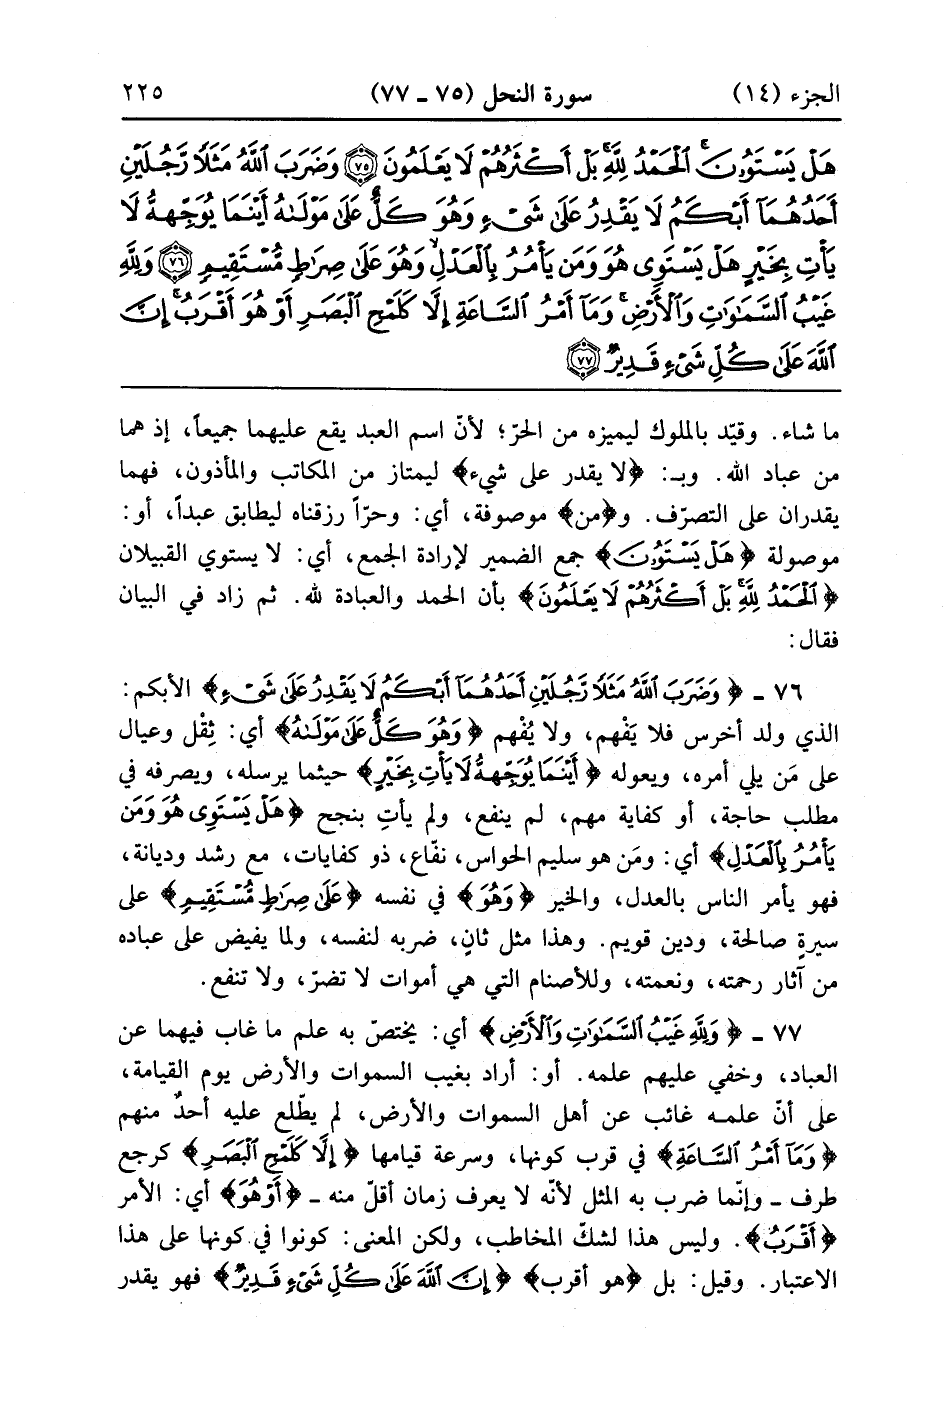 الجزء (١٤) سورة النحل (٧٥ ـ ٧٧) ٢٢٥
هَلْ يَسْتَوُۥنَ ۚ ٱلْحَمْدُ لِلَّهِ ۚ بَلْ أَكْثَرُهُمْ لَا يَعْلَمُونَ ﴿٧٥﴾ وَضَرَبَ ٱللَّهُ مَثَلًا رَّجُلَيْنِ
أَحَدُهُمَآ أَبْكَمُ لَا يَقْدِرُ عَلَىٰ شَىْءٍ وَهُوَ كَلٌّ عَلَىٰ مَوْلَىٰهُ أَيْنَمَا يُوَجِّههُّ لَا
يَأْتِ بِخَيْرٍ هَلْ يَسْتَوِى هُوَ وَمَن يَأْمُرُ بِٱلْعَدْلِ ۙ وَهُوَ عَلَىٰ صِرَٰطٍ مُّسْتَقِيمٍ ﴿٧٦﴾ وَلِلَّهِ
غَيْبُ ٱلسَّمَٰوَٰتِ وَٱلْأَرْضِ ۚ وَمَآ أَمْرُ ٱلسَّاعَةِ إِلَّا كَلَمْحِ ٱلْبَصَرِ أَوْ هُوَ أَقْرَبُ ۚ إِنَّ
ٱللَّهَ عَلَىٰ كُلِّ شَىْءٍ قَدِيرٌ ﴿٧٧﴾
ما شاء. وقيّد بالملوك ليميزه من الحرّ؛ لأنّ اسم العبد يقع عليهما جميعاً، إذ هما
من عباد الله. وبـ: ﴿لا يقدر على شيء﴾ ليمتاز من المكاتب والمأذون، فهما
يقدران على التصرّف. و﴿من﴾ موصوفة، أي: وحرّاً رزقناه ليطابق عبداً، أو:
موصولة ﴿هَلْ يَسْتَوُۥنَ﴾ جمع الضمير لإرادة الجمع، أي: لا يستوي القبيلان
﴿ٱلْحَمْدُ لِلَّهِ ۚ بَلْ أَكْثَرُهُمْ لَا يَعْلَمُونَ﴾ بأن الحمد والعبادة لله. ثم زاد في البيان
فقال:
٧٦ ـ ﴿وَضَرَبَ ٱللَّهُ مَثَلًا رَّجُلَيْنِ أَحَدُهُمَآ أَبْكَمُ لَا يَقْدِرُ عَلَىٰ شَىْءٍ﴾ الأبكم:
الذي ولد أخرس فلا يَفْهم، ولا يُفْهم ﴿وَهُوَ كَلٌّ عَلَىٰ مَوْلَىٰهُ﴾ أي: ثِقْل وعيال
على مَن يلي أمره، ويعوله ﴿أَيْنَمَا يُوَجِّههُّ لَا يَأْتِ بِخَيْرٍ﴾ حيثما يرسله، ويصرفه في
مطلب حاجة، أو كفاية مهم، لم ينفع، ولم يأتِ بنجح ﴿هَلْ يَسْتَوِى هُوَ وَمَن
يَأْمُرُ بِٱلْعَدْلِ﴾ أي: ومَن هو سليم الحواس، نفّاع، ذو كفايات، مع رشد وديانة،
فهو يأمر الناس بالعدل، والخير ﴿وَهُوَ﴾ في نفسه ﴿عَلَىٰ صِرَٰطٍ مُّسْتَقِيمٍ﴾ على
سيرةٍ صالحة، ودين قويم. وهذا مثل ثانٍ، ضربه لنفسه، ولما يفيض على عباده
من آثار رحمته، ونعمته، وللأصنام التي هي أموات لا تضرّ، ولا تنفع.
٧٧ ـ ﴿وَلِلَّهِ غَيْبُ ٱلسَّمَٰوَٰتِ وَٱلْأَرْضِ﴾ أي: يختصّ به علم ما غاب فيهما عن
العباد، وخفي عليهم علمه. أو: أراد بغيب السموات والأرض يوم القيامة،
على أنّ علمه غائب عن أهل السموات والأرض، لم يطّلع عليه أحدٌ منهم
﴿وَمَآ أَمْرُ ٱلسَّاعَةِ﴾ في قرب كونها، وسرعة قيامها ﴿إِلَّا كَلَمْحِ ٱلْبَصَرِ﴾ كرجع
طرف ـ وإنّما ضرب به المثل لأنّه لا يعرف زمان أقلّ منه ـ ﴿أَوْ هُوَ﴾ أي: الأمر
﴿أَقْرَبُ﴾. وليس هذا لشكّ المخاطب، ولكن المعنى: كونوا في كونها على هذا
الاعتبار. وقيل: بل ﴿هو أقرب﴾ ﴿إِنَّ ٱللَّهَ عَلَىٰ كُلِّ شَىْءٍ قَدِيرٌ﴾ فهو يقدر